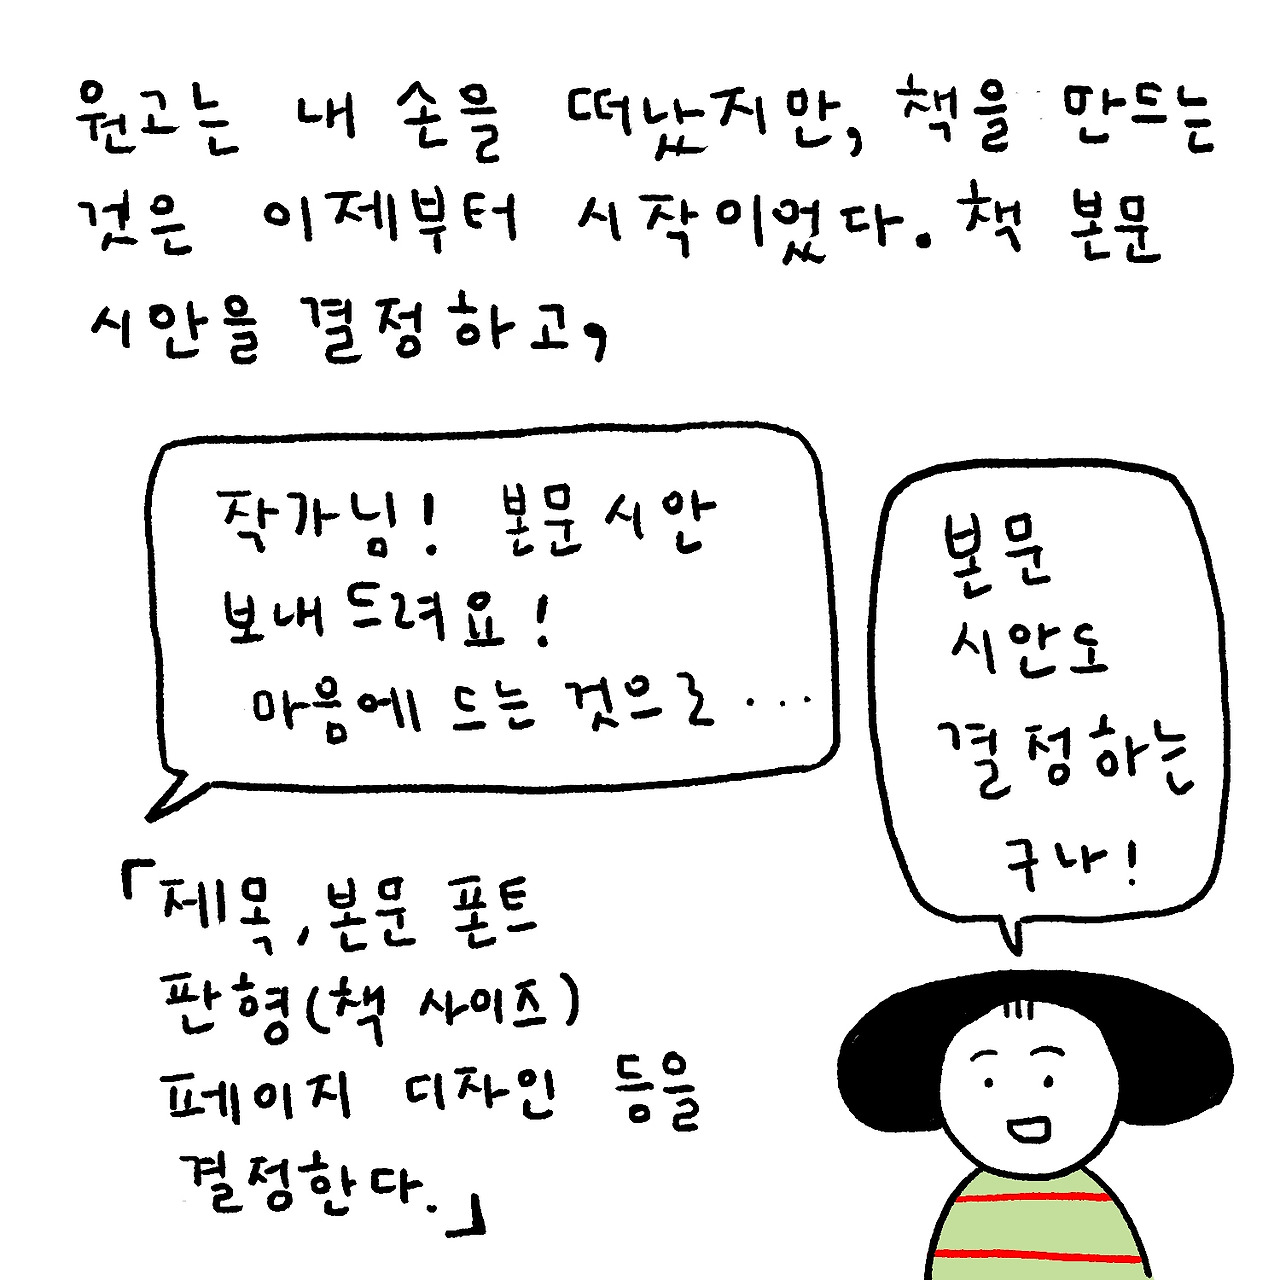 원고는 내 손을 떠났지만, 책을 만드는
것은 이제부터 시작이었다. 책 본문
시안을 결정하고,
작가님! 본문 시안
보내드려요!
마음에 드는 것으로 ....
본문
시안도
결정하는
구나!
「제목, 본문 폰트
판형(책 사이즈)
페이지 디자인 등을
결정한다.」